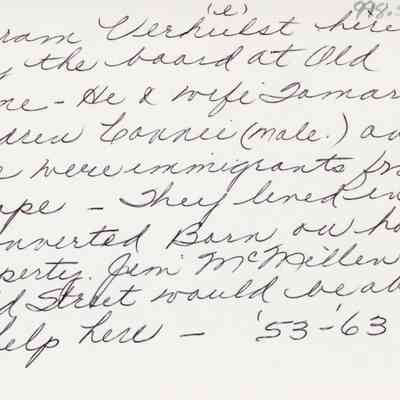 998.5
(e)
ram Verhulst here
y the board at Old
me - He & wife Tamar
dren Connie (male.) an
e were immigrants fr
ope - They lived in
onverted Barn on ho
perty. Jim McMillen
d Street would be ab
help here - '53-'63